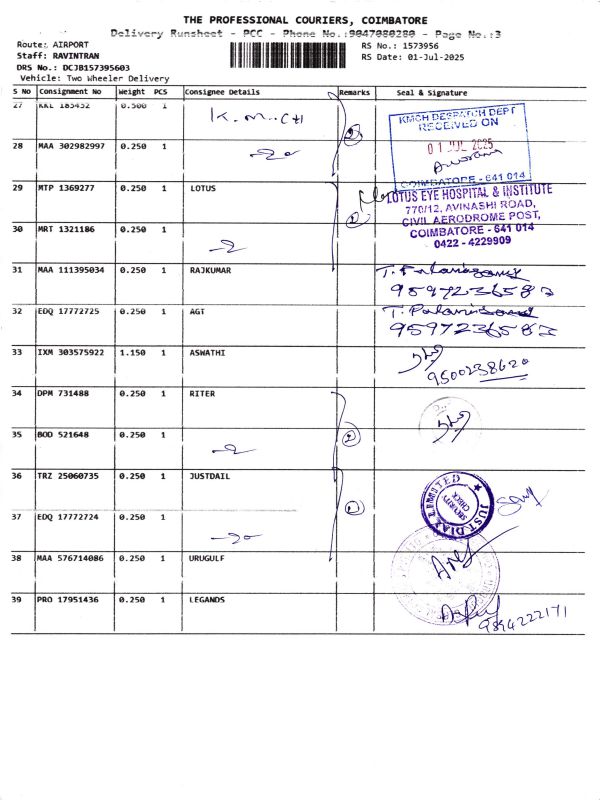 THE PROFESSIONAL COURIERS, COIMBATORE
Delivery Runsheet - PCC - Phone No.:9047080280 - Page No.:3
Route: AIRPORT
RS No.: 1573956
Staff: RAVINTRAN
RS Date: 01-Jul-2025
DRS No.: DCJB157395603
Vehicle: Two Wheeler Delivery
S No Consignment No Weight PCS Consignee Details Remarks Seal & Signature
27 KKL 183452 0.500 1 K.M.CH
KMCH DESPATCH DEPT
RECEIVED ON
01 JUL 2025
COIMBATORE - 641 014
28 MAA 302982997 0.250 1
29 MTP 1369277 0.250 1 LOTUS
LOTUS EYE HOSPITAL & INSTITUTE
770/12, AVINASHI ROAD,
CIVIL AERODROME POST,
COIMBATORE - 641 014
0422 - 4229909
30 MRT 1321186 0.250 1
31 MAA 111395034 0.250 1 RAJKUMAR
9597236583
32 EDQ 17772725 0.250 1 AGT
9597236583
33 IXM 303575922 1.150 1 ASWATHI
9500238620
34 DPM 731488 0.250 1 RITER
35 BOD 521648 0.250 1
36 TRZ 25060735 0.250 1 JUSTDAIL
JUST DIAL LIMITED
SECURITY
CHECK
37 EDQ 17772724 0.250 1
38 MAA 576714086 0.250 1 URUGULF
39 PRO 17951436 0.250 1 LEGANDS
9894222171